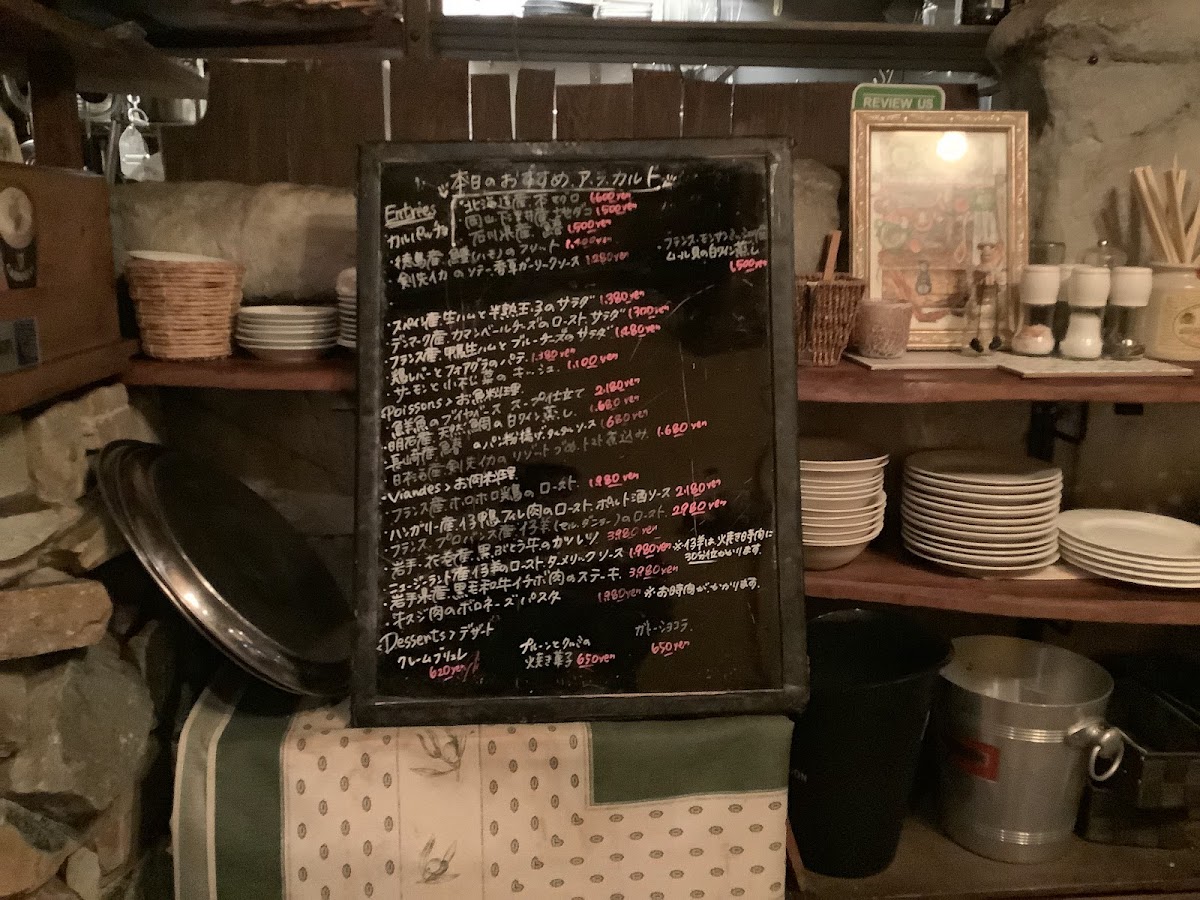 REVIEW US
本日のおすすめ ア・ラ・カルト
Entrées
カルパッチョ
北海道産 1600yen
岡山下津井産 地ダコ 1500yen
石川県産 鰆 1,500yen
・徳島産 鱧(ハモ)のフリット 1,400yen
・剣先イカのソテー 香草ガーリックソース 1,280yen
・フランス・モンサンミッシェル産
ムール貝の白ワイン蒸し
1,500yen
・スペイン産生ハムと半熟玉子のサラダ 1,380yen
・デンマーク産カマンベールチーズのローストサラダ 1300yen
・フランス産 鴨生ハムとブルーチーズのサラダ 1,480yen
・鶏レバーとフォアグラのパテ 1,380yen
・サーモンと小松菜のキッシュ 1,100yen
<Poissons> お魚料理
・鮮魚のブイヤベース スープ仕立て 2,180yen
・明石産 天然鯛の白ワイン蒸し 1,680yen
・長崎産 鰆のパン粉揚げ タルタルソース 1680yen
剣先イカのリゾット トマト煮込み 1,680yen
<Viandes> お肉料理
・フランス産ホロホロ鶏のロースト 1,980yen
・ハンガリー産 仔鴨ムネ肉のロースト ポルト酒ソース 2180yen
・フランス プロバンス産 仔羊のロースト 2980yen
・岩手・衣巻産 黒ぶどう牛のカツレツ 3,980yen
・ニュージーランド産 仔羊のロースト ソース 1,980yen ※仔羊は、焼き時間に
30分位かかります
・岩手県産 黒毛和牛 イチボ肉のステーキ 3,980yen
・牛スジ肉のボロネーズパスタ 1,980yen ※お時間がかかります。
<Desserts> デザート
クレームブリュレ
620yen
プルーンとクルミの
焼き菓子 650yen
ガトーショコラ
650yen